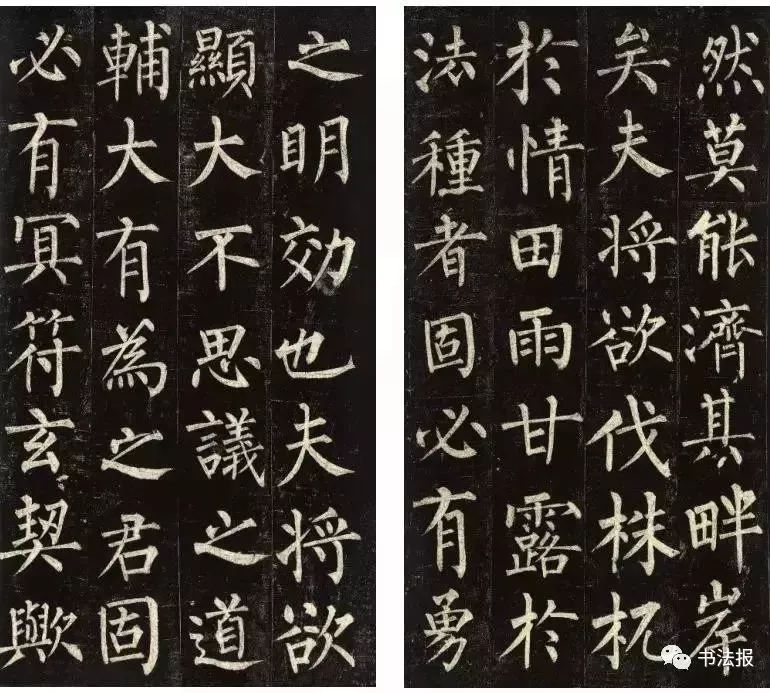 然莫能濟其畔岸
矣夫將欲伐株杌
於情田雨甘露於
法種者固必有勇
之明効也夫將欲
顯大不思議之道
輔大有為之君固
必有冥符玄契歟
书法报